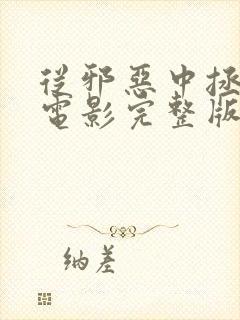 從邪惡中拯
電影完整版
纳差